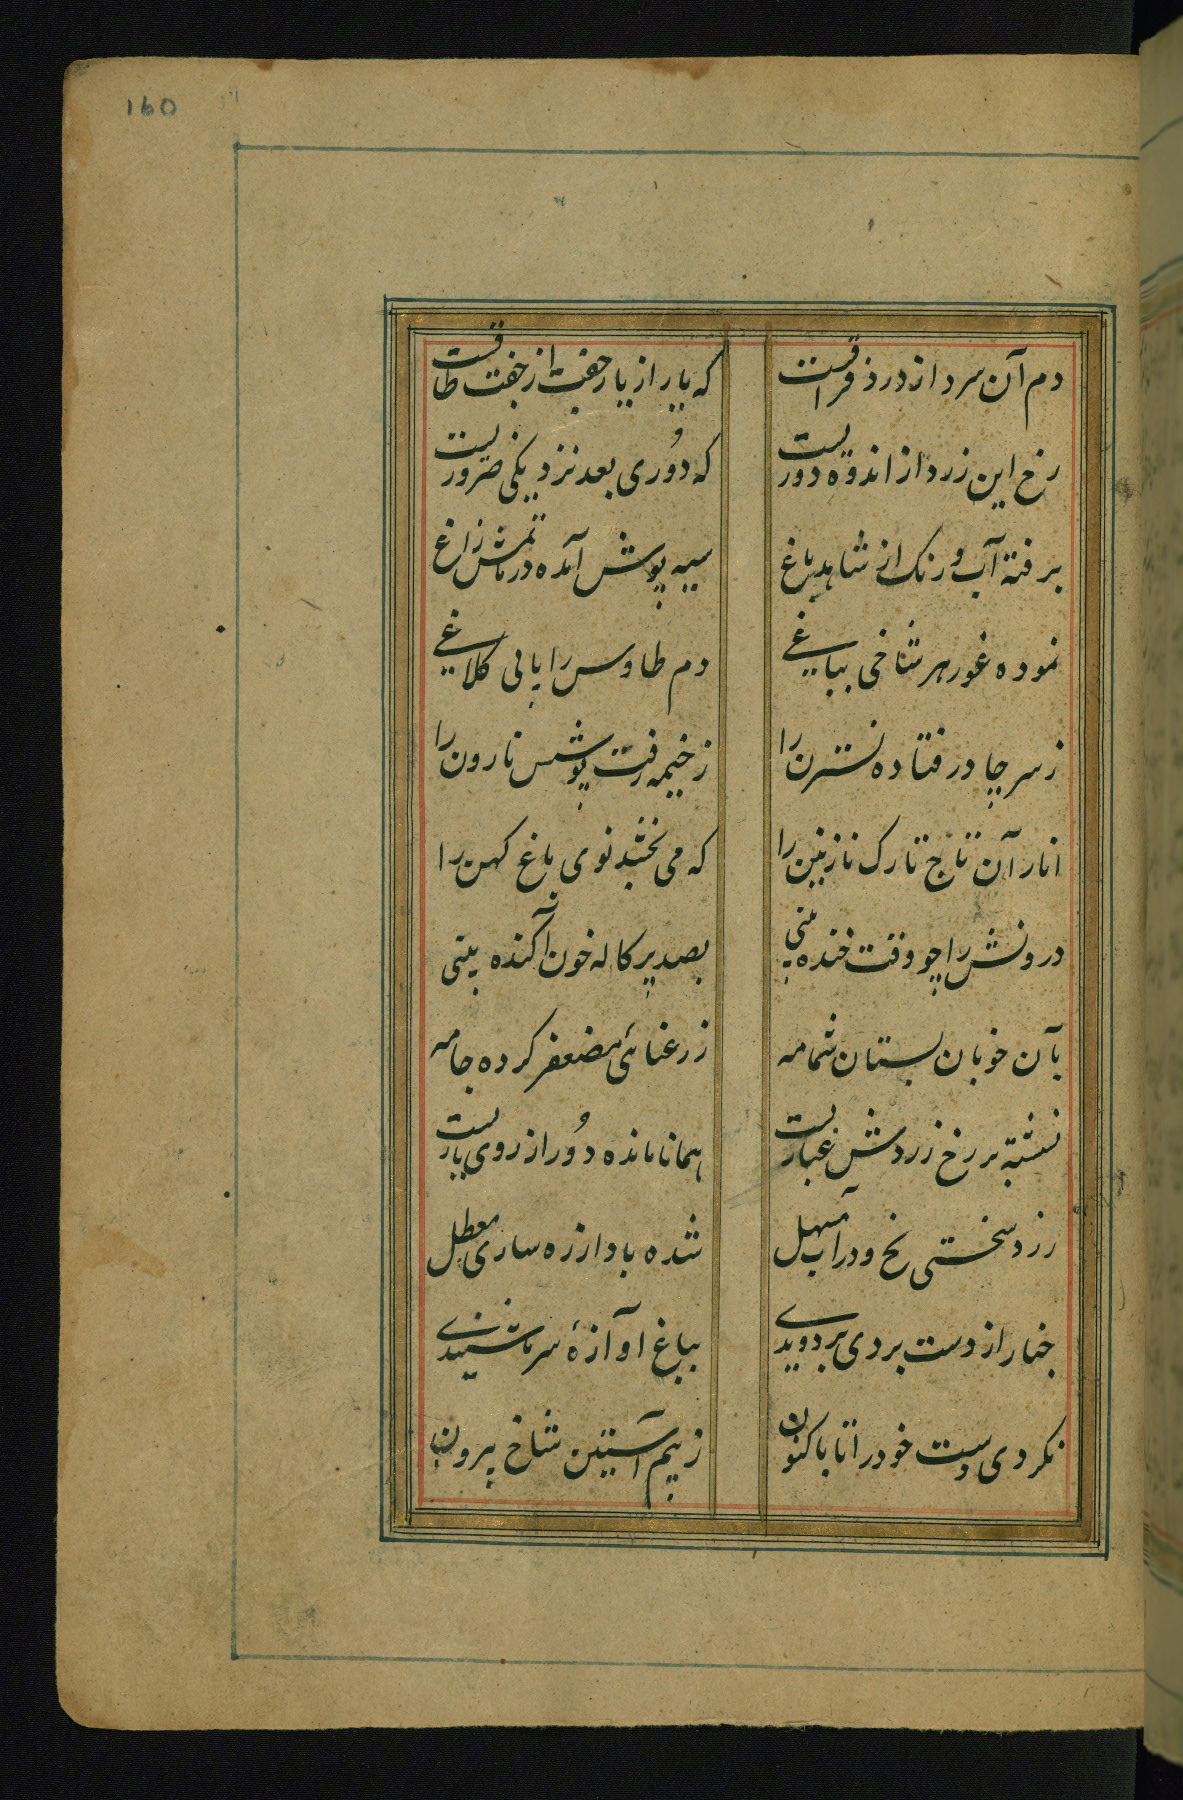 160
دم آن سرد از درد فراقست که یار از یار جفت از جفت طاقست
رخ این زرد از اندوه دوریست که دوری بعد نزدیکی ضروریست
برفته آب و رنک از شاهد باغ سیه پوش آمده در ماتمش زاغ
نموده غور هر شاخی بباغی دم طاوس را بابی کلاغی
ز سر چادر فتاده نسترن را ز خیمه رفت پوشس نارون را
انار آن تاج تارک نازنین را که می بخشد نوی باغ کهن را
درونش را چو وقت خنده بینی بصد پرکاله خون آکنده بینی
بآن خوبان بستان شمامه ز رعنائی مضعفر کرده جامه
نشسته بر رخ زردش غباریست همانا مانده دور از روی یاریست
رزد سختی یخ و در آب سهل شده باد از زه سازی معطل
چنار از دست بردی بردویدی بباغ او آزهٔ سرما شنیدی
نکردی دست خود را تا باکنون ز بیم آستین شاخ بیرون